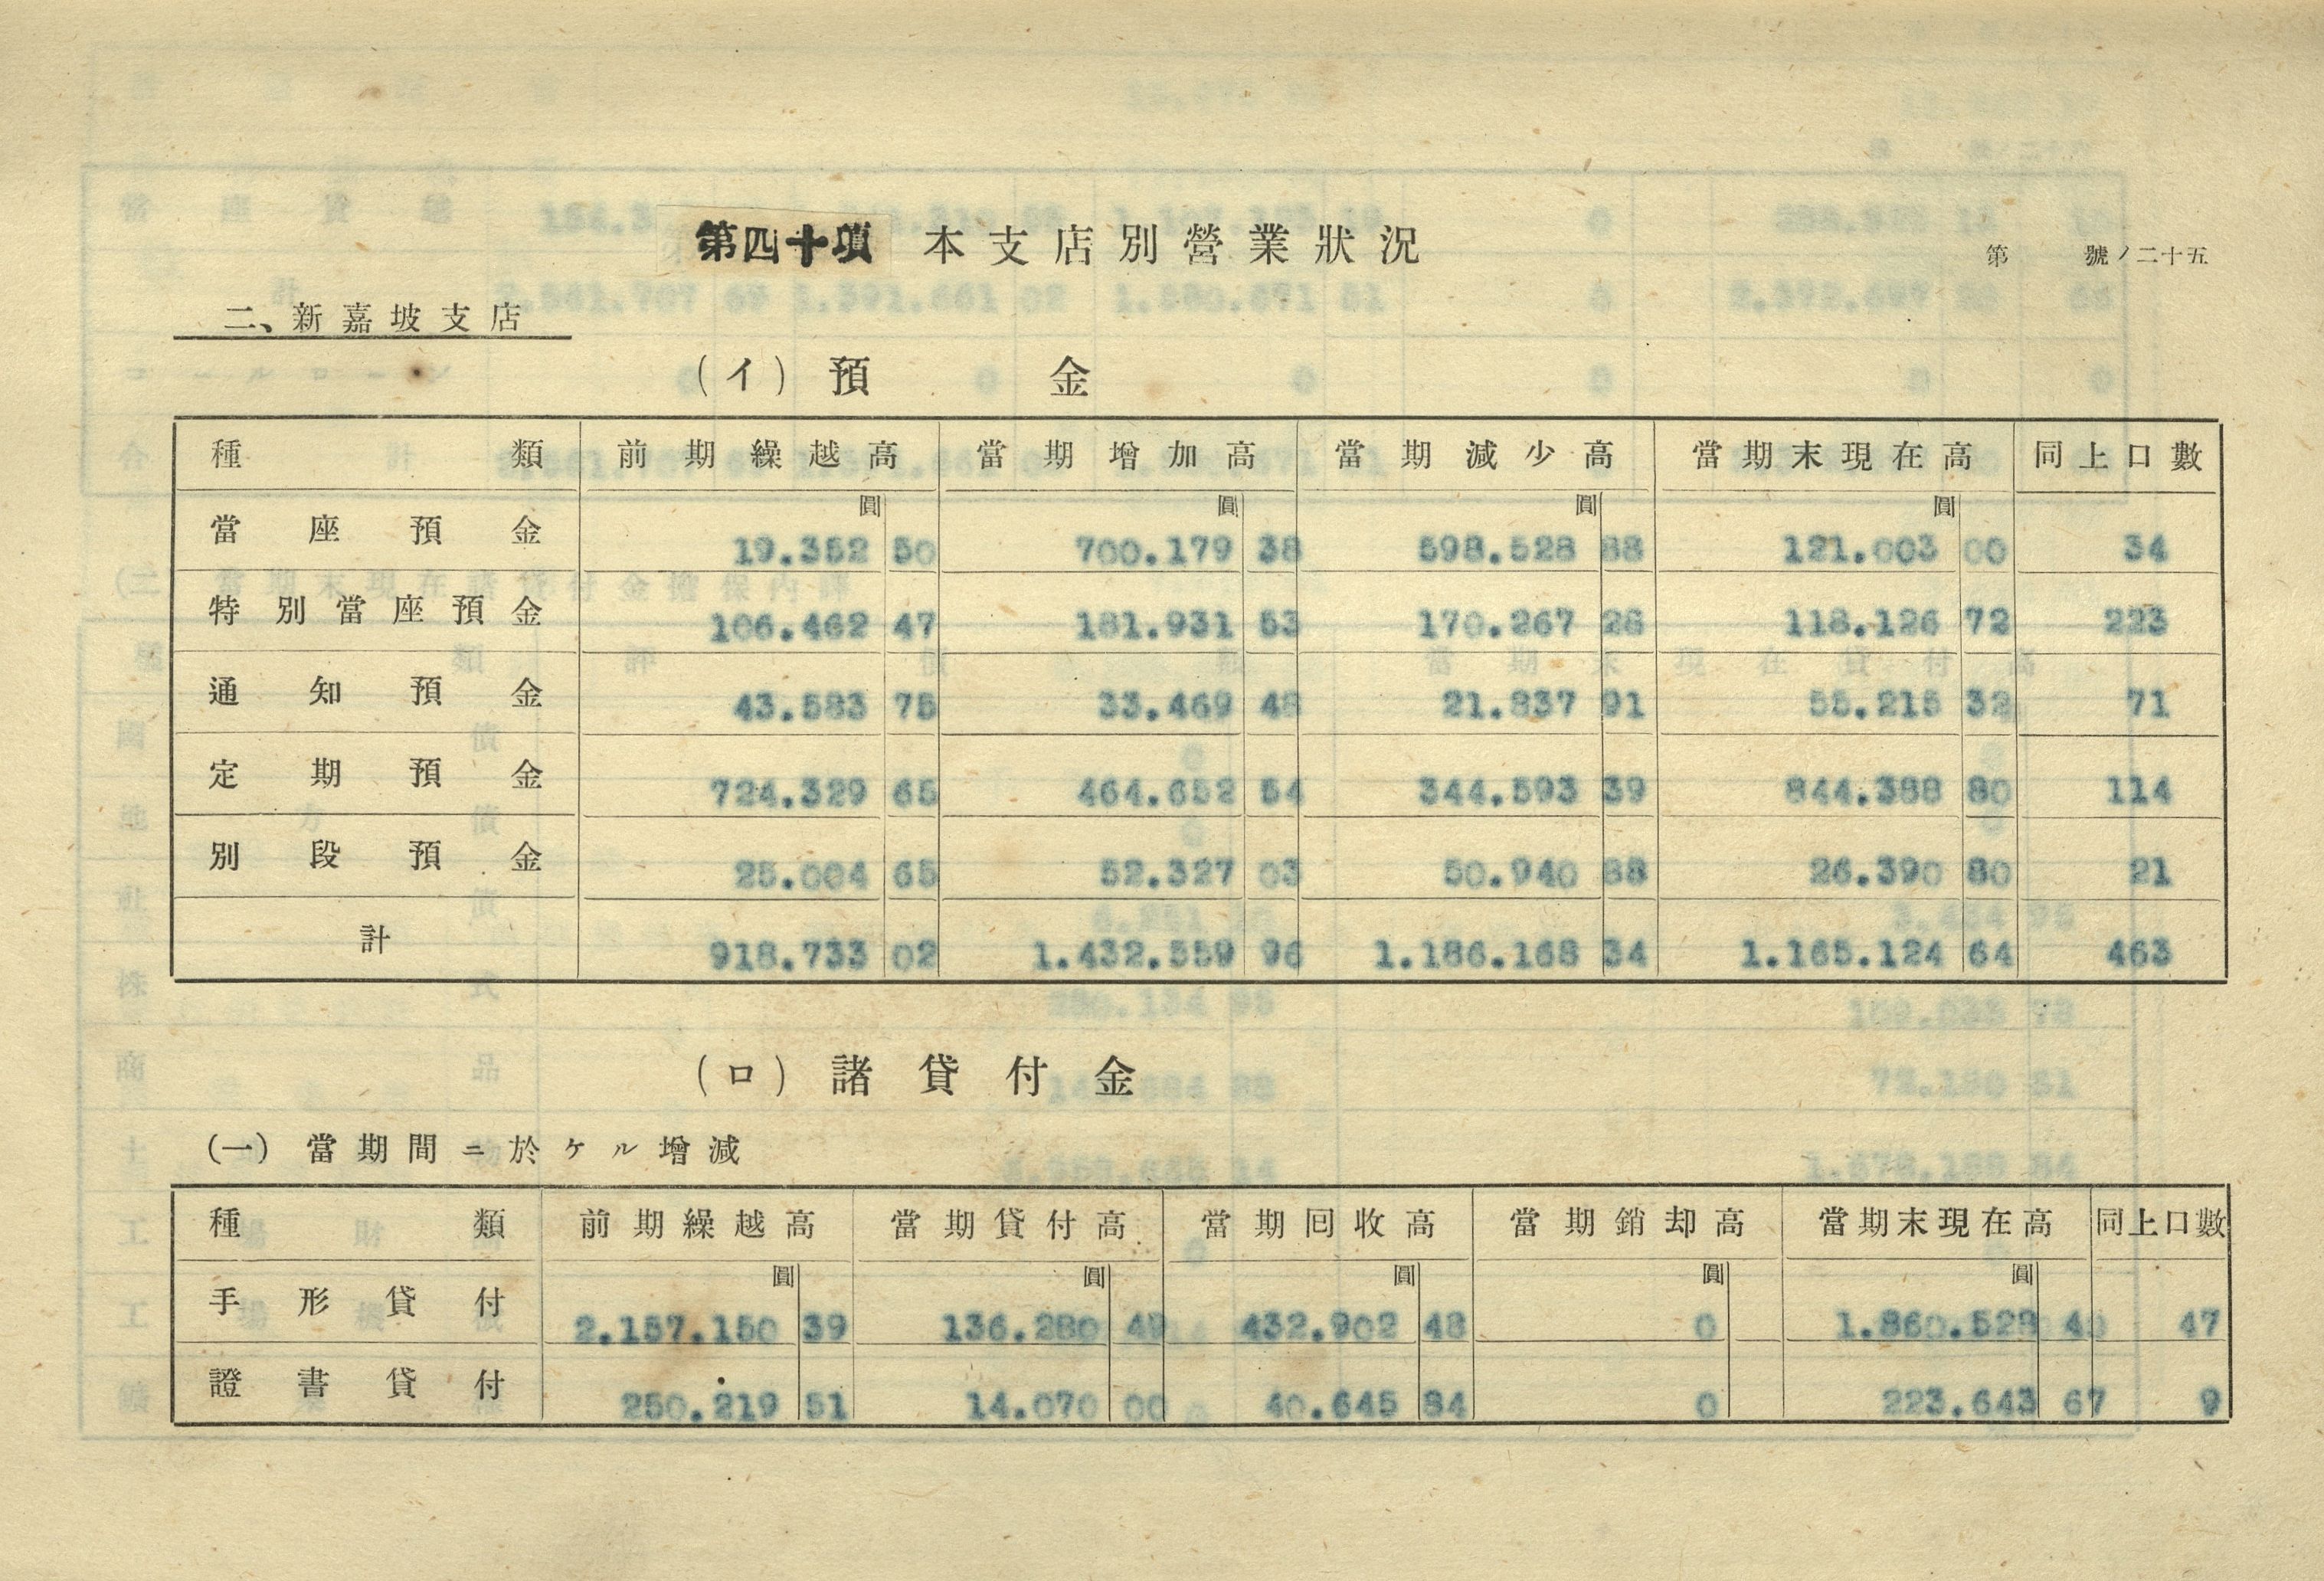 第四十項 本支店別營業狀況 第 號ノ二十五
二、新嘉坡支店
(イ) 預 金
種類 前期繰越高 當期增加高 當期減少高 當期末現在高 同上口數
圓 圓 圓 圓
當座預金 19.352 50 700.179 38 598.528 88 121.003 00 34
特別當座預金 106.462 47 181.931 53 170.267 28 118.126 72 223
通知預金 43.583 75 33.469 48 21.837 91 55.215 32 71
定期預金 724.329 65 464.652 54 344.593 39 844.388 80 114
別段預金 25.004 65 52.327 03 50.940 88 26.390 80 21
計 918.733 02 1.432.559 96 1.186.168 34 1.165.124 64 463
(ロ) 諸貸付金
(一) 當期間ニ於ケル增減
種類 前期繰越高 當期貸付高 當期囘收高 當期銷却高 當期末現在高 同上口數
圓 圓 圓 圓 圓
手形貸付 2.157.150 39 136.280 49 432.902 48 0 1.860.528 40 47
證書貸付 250.219 51 14.070 00 40.645 84 0 223.643 67 9